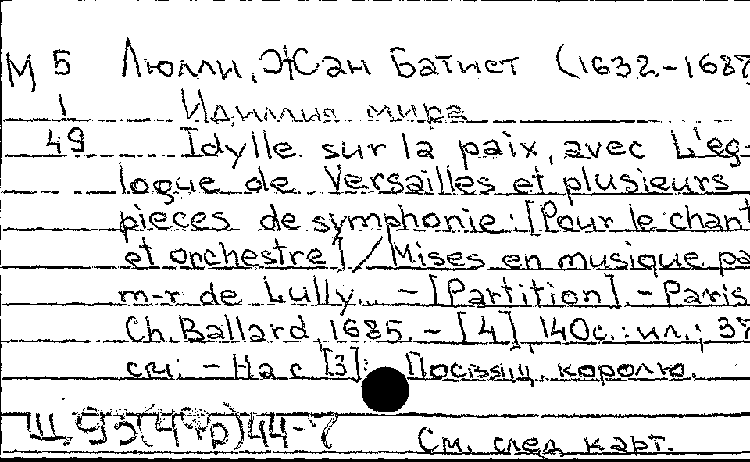 М 5 Люлли, Жан Батист (1632-1687
1 Идиллия мира
49 Idylle sur la paix, avec L'eg-
logue de Versailles et plusieurs
pieces de symphonie: [Pour le chant
et orchestre] / Mises en musique pa
m-r de Lully... - [Partition]. - Paris
Ch. Ballard, 1685. - [4], 140с.: ил.; 37
см. - На с [3]: Посвящ. королю.
Ш 95(4Фр)44-7 См. след карт.